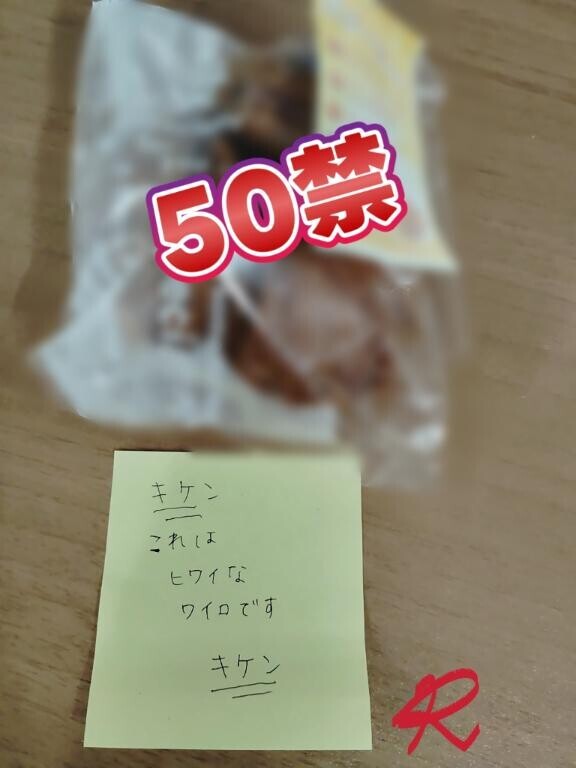 50禁
キケン
これは
ヒワイな
ワイロです
キケン
R